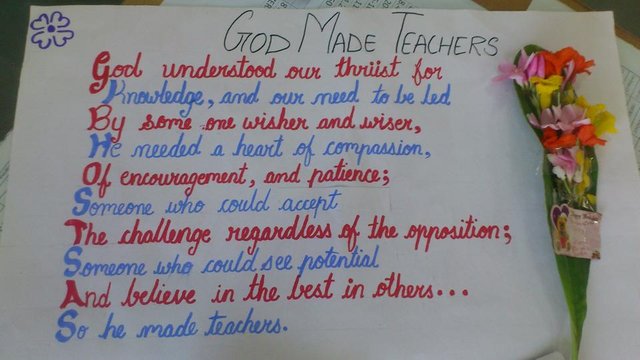 GOD MADE TEACHERS
God understood our thriist for
Knowledge, and our need to be led
By some one wisher and wiser,
He needed a heart of compassion,
Of encouragement, and patience;
Someone who could accept
The challenge regardless of the opposition;
Someone who could see potential
And believe in the best in others...
So he made teachers.